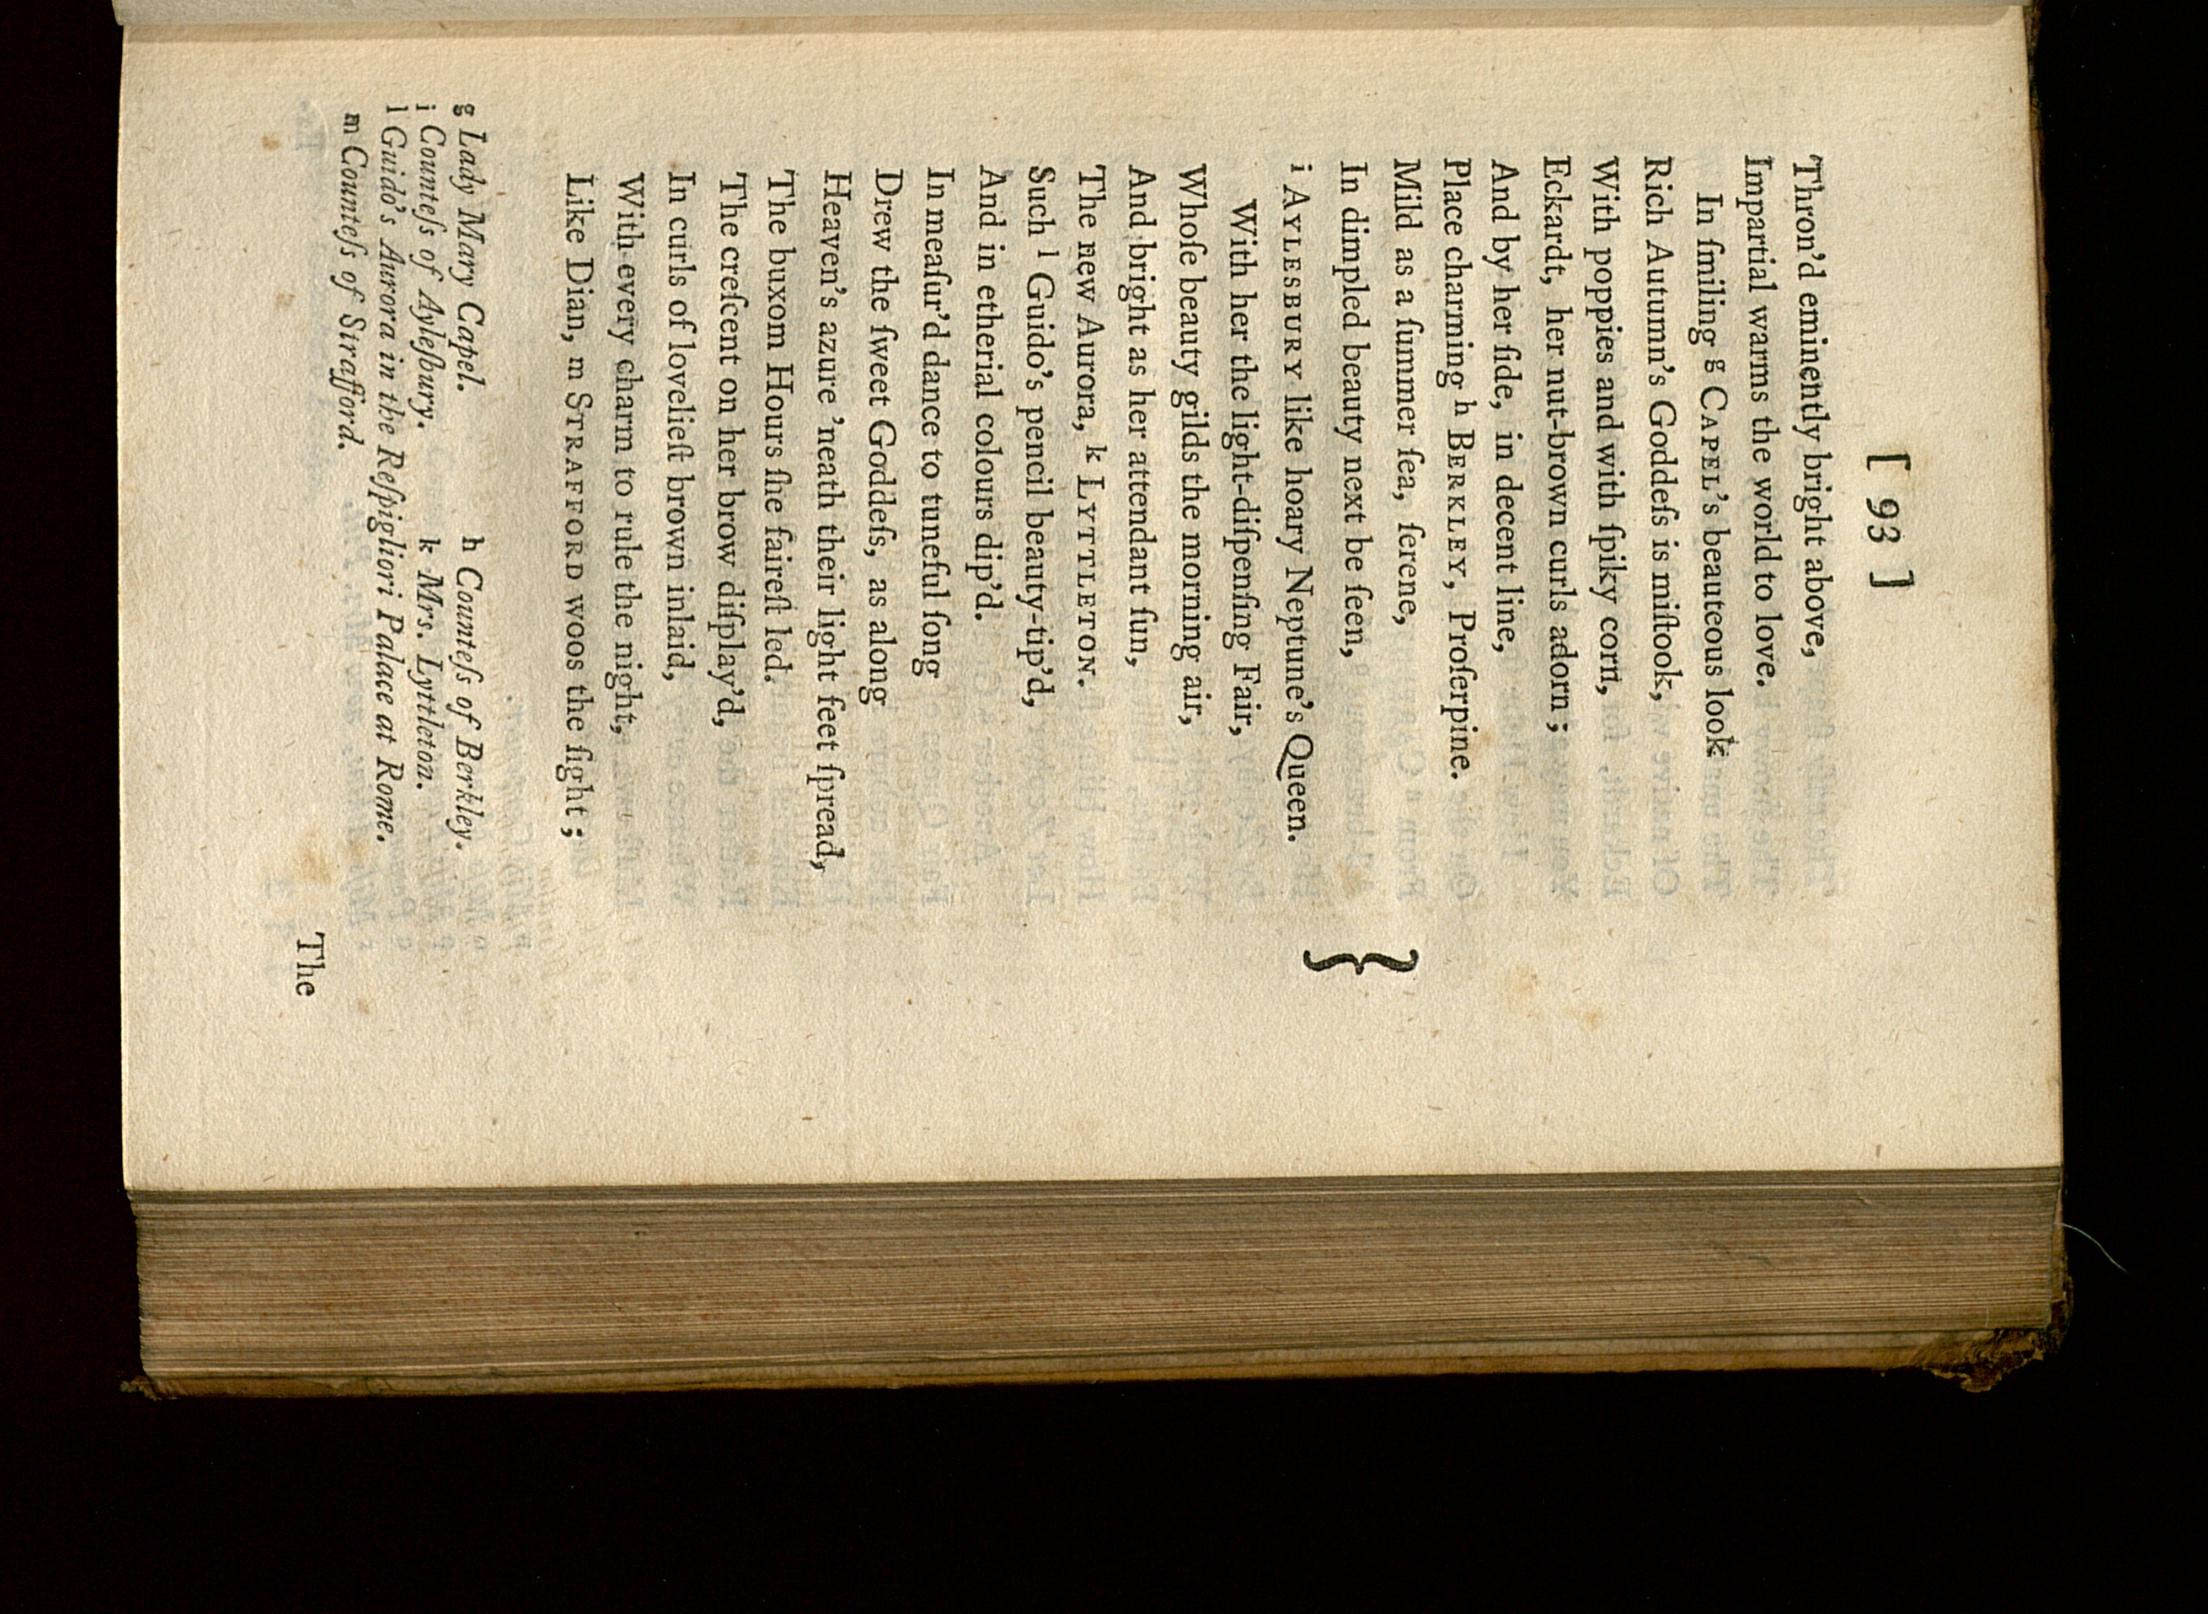 [ 93 ]
Thron'd eminently bright above,
Impartial warms the world to love.
In ſmiling g CAPEL's beauteous look
Rich Autumn's Goddeſs is miſtook,
With poppies and with ſpiky corn,
Eckardt, her nut-brown curls adorn;
And by her ſide, in decent line,
Place charming h BERKLEY, Proſerpine.
Mild as a ſummer ſea, ſerene,
In dimpled beauty next be ſeen, }
i AYLESBURY like hoary Neptune's Queen.
With her the light-diſpenſing Fair,
Whoſe beauty gilds the morning air,
And bright as her attendant ſun,
The new Aurora, k LYTTLETON.
Such l Guido's pencil beauty-tip'd,
And in etherial colours dip'd.
In meaſur'd dance to tuneful ſong
Drew the ſweet Goddeſs, as along
Heaven's azure 'neath their light feet ſpread,
The buxom Hours ſhe faireſt led.
The creſcent on her brow diſplay'd,
In curls of lovelieſt brown inlaid,
With every charm to rule the night,
Like Dian, m STRAFFORD woos the ſight;
g Lady Mary Capel. h Counteſs of Berkley.
i Counteſs of Ayleſbury. k Mrs. Lyttleton.
l Guido's Aurora in the Reſpigliori Palace at Rome.
m Counteſs of Strafford.
The